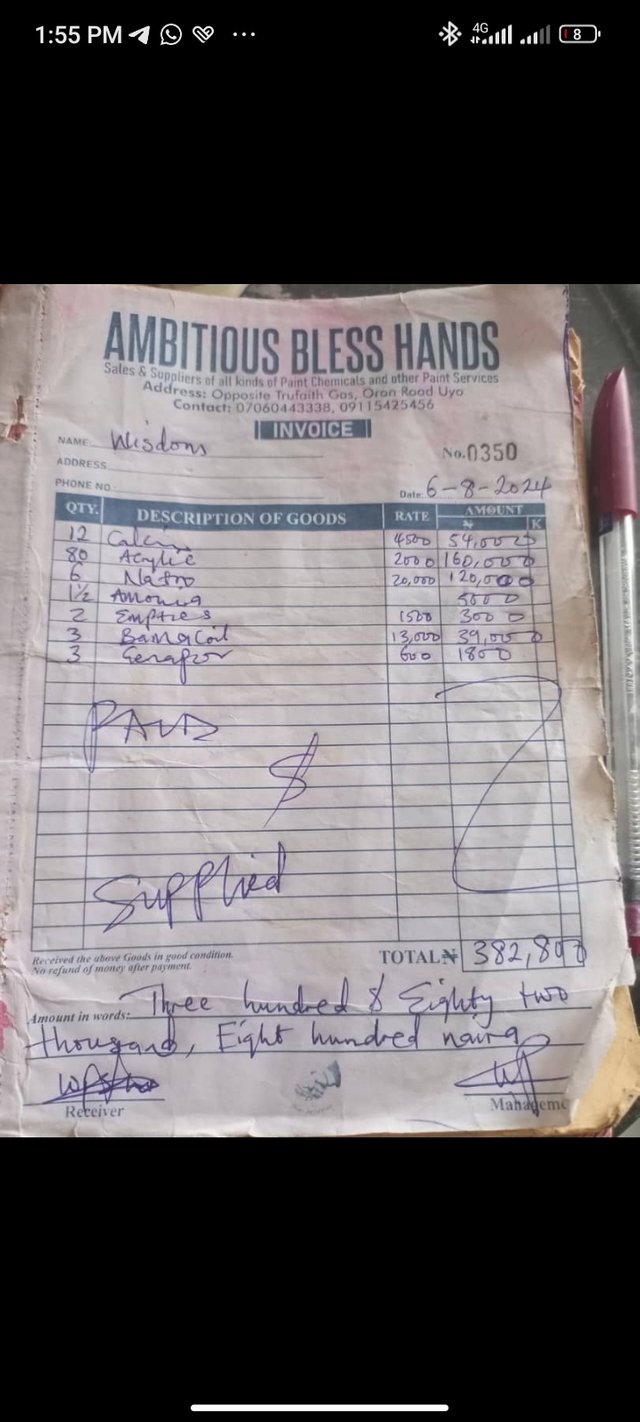 1:55 PM ...
4G 8
AMBITIOUS BLESS HANDS
Sales & Suppliers of all kinds of Paint Chemicals and other Paint Services
Address: Opposite Trufaith Gas, Oron Road Uyo
Contact: 07060443338, 09115425456
INVOICE
NAME: Wisdom No.0350
ADDRESS
PHONE NO.: Date: 6-8-2024
QTY. DESCRIPTION OF GOODS RATE AMOUNT
₦ K
12 4500 54,000
80 Acrylic 2000 160,000
6 Natro 20,000 120,000
1½ Amonia 5000
2 Empties 1500 3000
3 13,000 39,000
3 600 1800
PAID
&
Supplied
Received the above Goods in good condition.
No refund of money after payment.
TOTAL ₦ 382,800
Amount in words: Three hundred & Eighty two
thousand, Eight hundred naira
Receiver Manageme